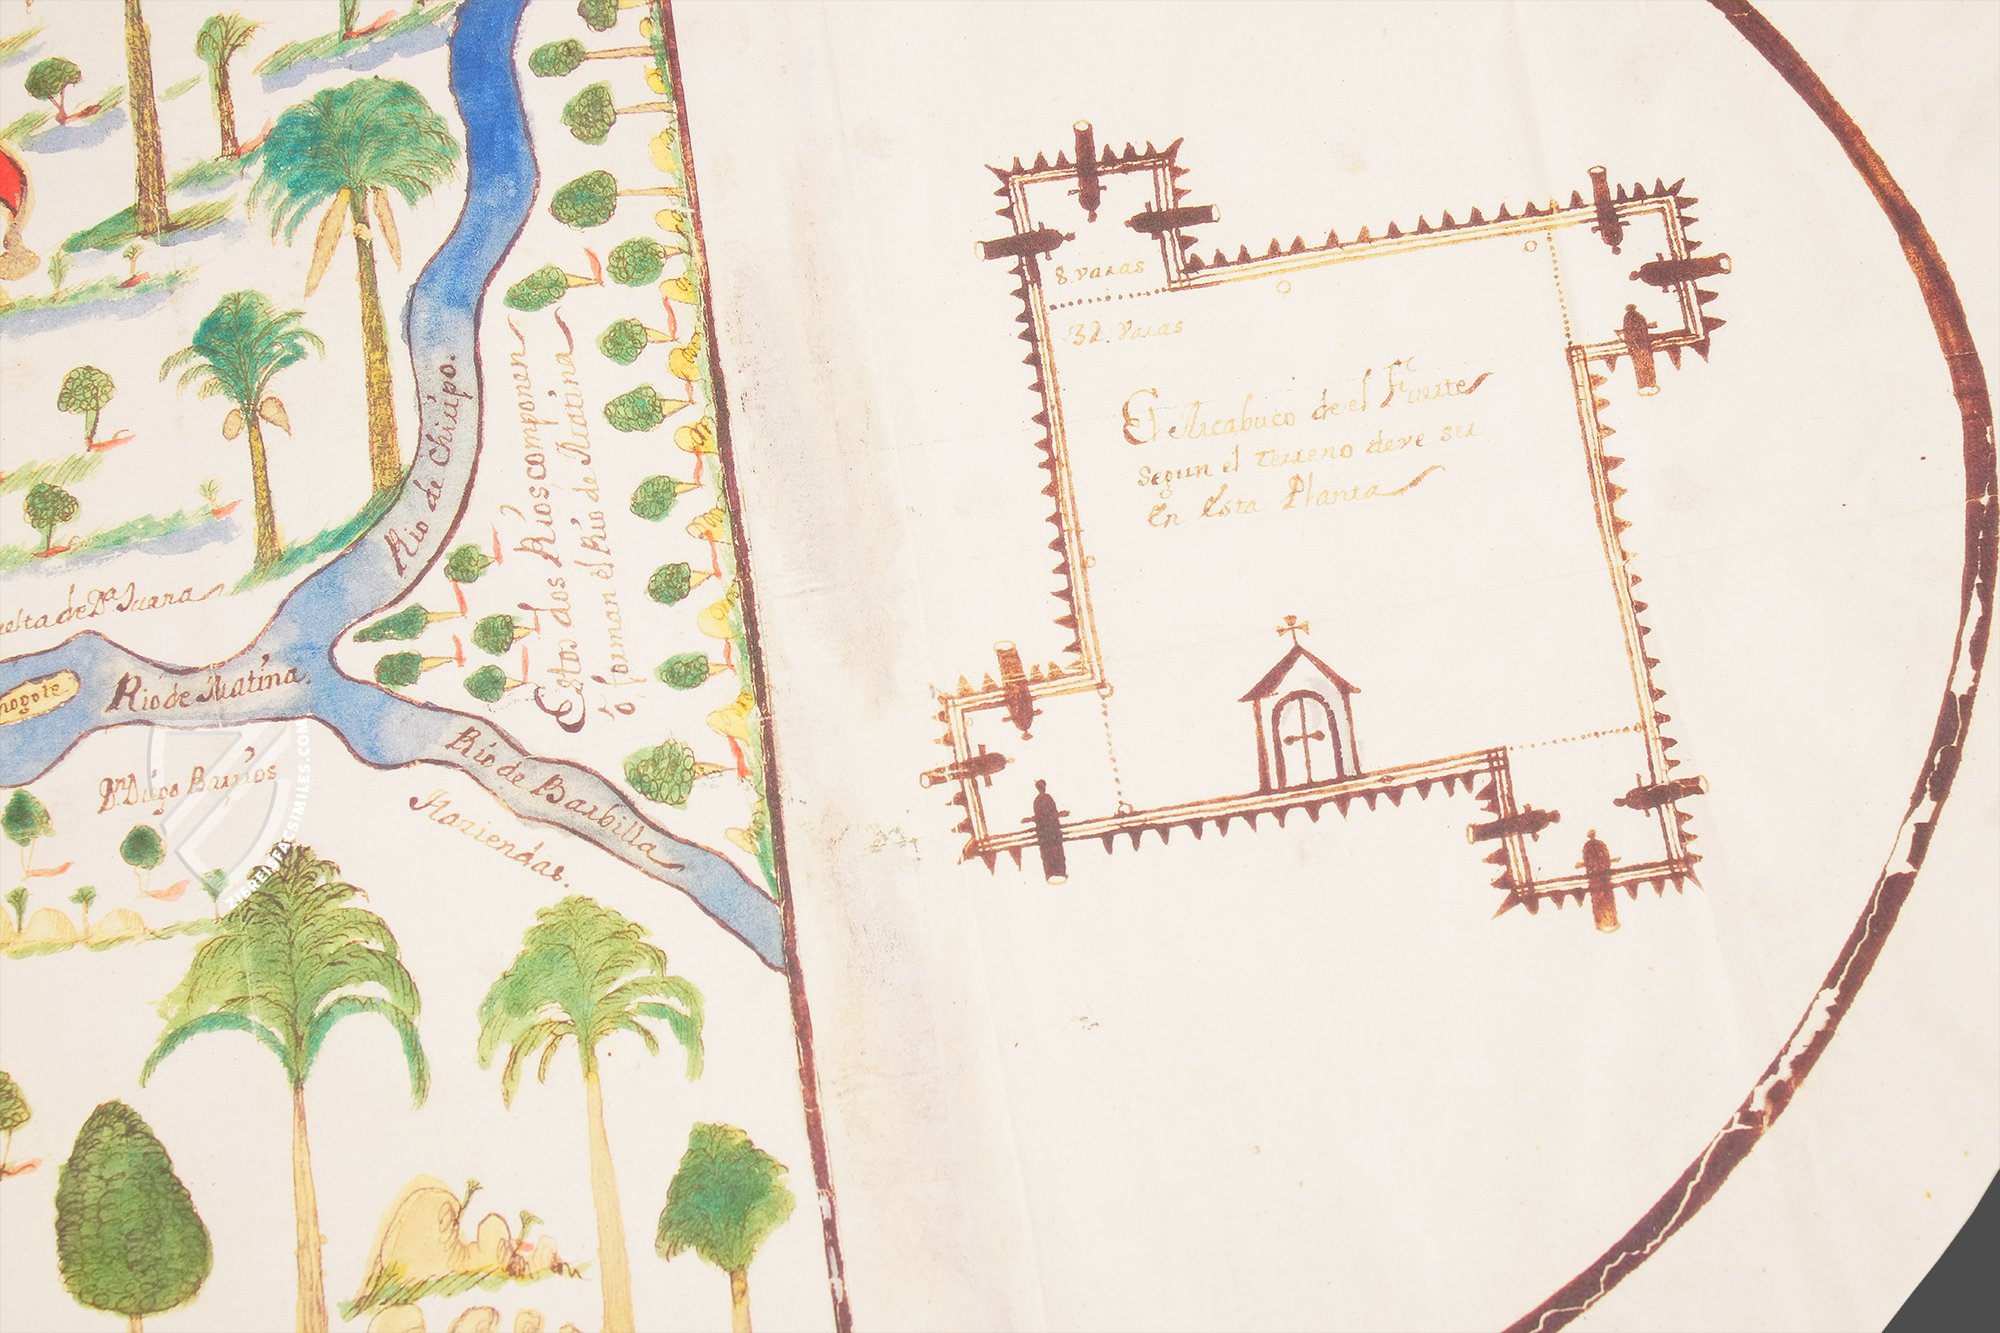 Rio de Chirípo.
Estos dos Ríos, componen
ó, forman el Río de Matina
uelta de Dª Juana
Rio de Matína.
mogote
Dn Diego Barrios
Río de Barbilla
Haziendas.
8. varas
32. varas
El Arcabuco de el Fuerte
Segun el terreno deve ser
En Esta Planta
ZIEREIFACSIMILES.COM